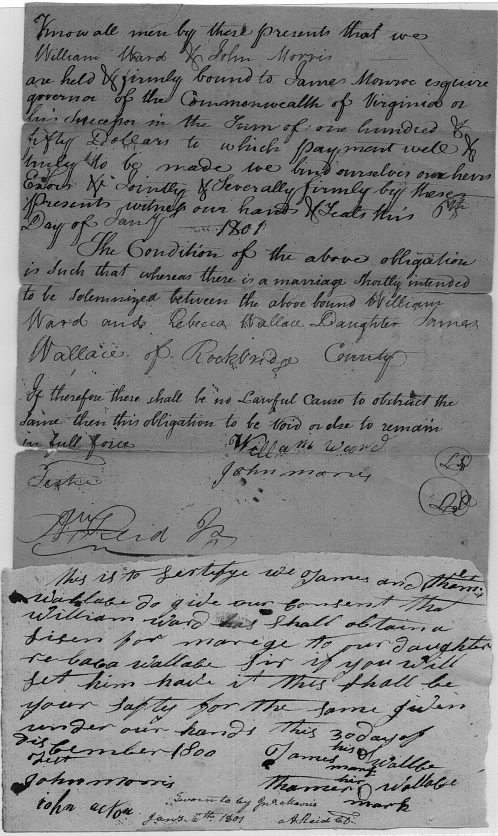 Know all men by these presents that we
William Ward & John Morris
are held & firmly bound to James Monroe esquire
governor of the Commonwealth of Virginia or
his Sucessor in the Sum of one hundred &
fifty Dollars to which payment well &
truly to be made we bind ourselves our heirs
Exors &c Jointly & Severally firmly by these
Presents witness our hands & Seals this 6th
Day of Jany 1801
The Condition of the above obligation
is Such that whereas there is a marriage Shortly intended
to be Solemnized between the above bound William
Ward and Rebecca Wallace Daughter James
Wallace of Rockbridge County
If therefore there shall be no Lawful Cause to obstruct the
Same then this obligation to be Void or else to remain
in full force
William Ward
Teste John Morris
A Reid Jr
this is to sertifye we James and
wallabe do give our Consent that
william ward shall obtain a
lisen for marege to our daughter
rebaca wallabe Sir if you will
let him have it this Shall be
your safty for the same given
under our hands this 30 day of
disCember 1800 James his wallbe
Test mark
John morris thamer her wallabe
iohn acton mark
Sworn to by Jno Morris
Jany 6th 1801 A Reid